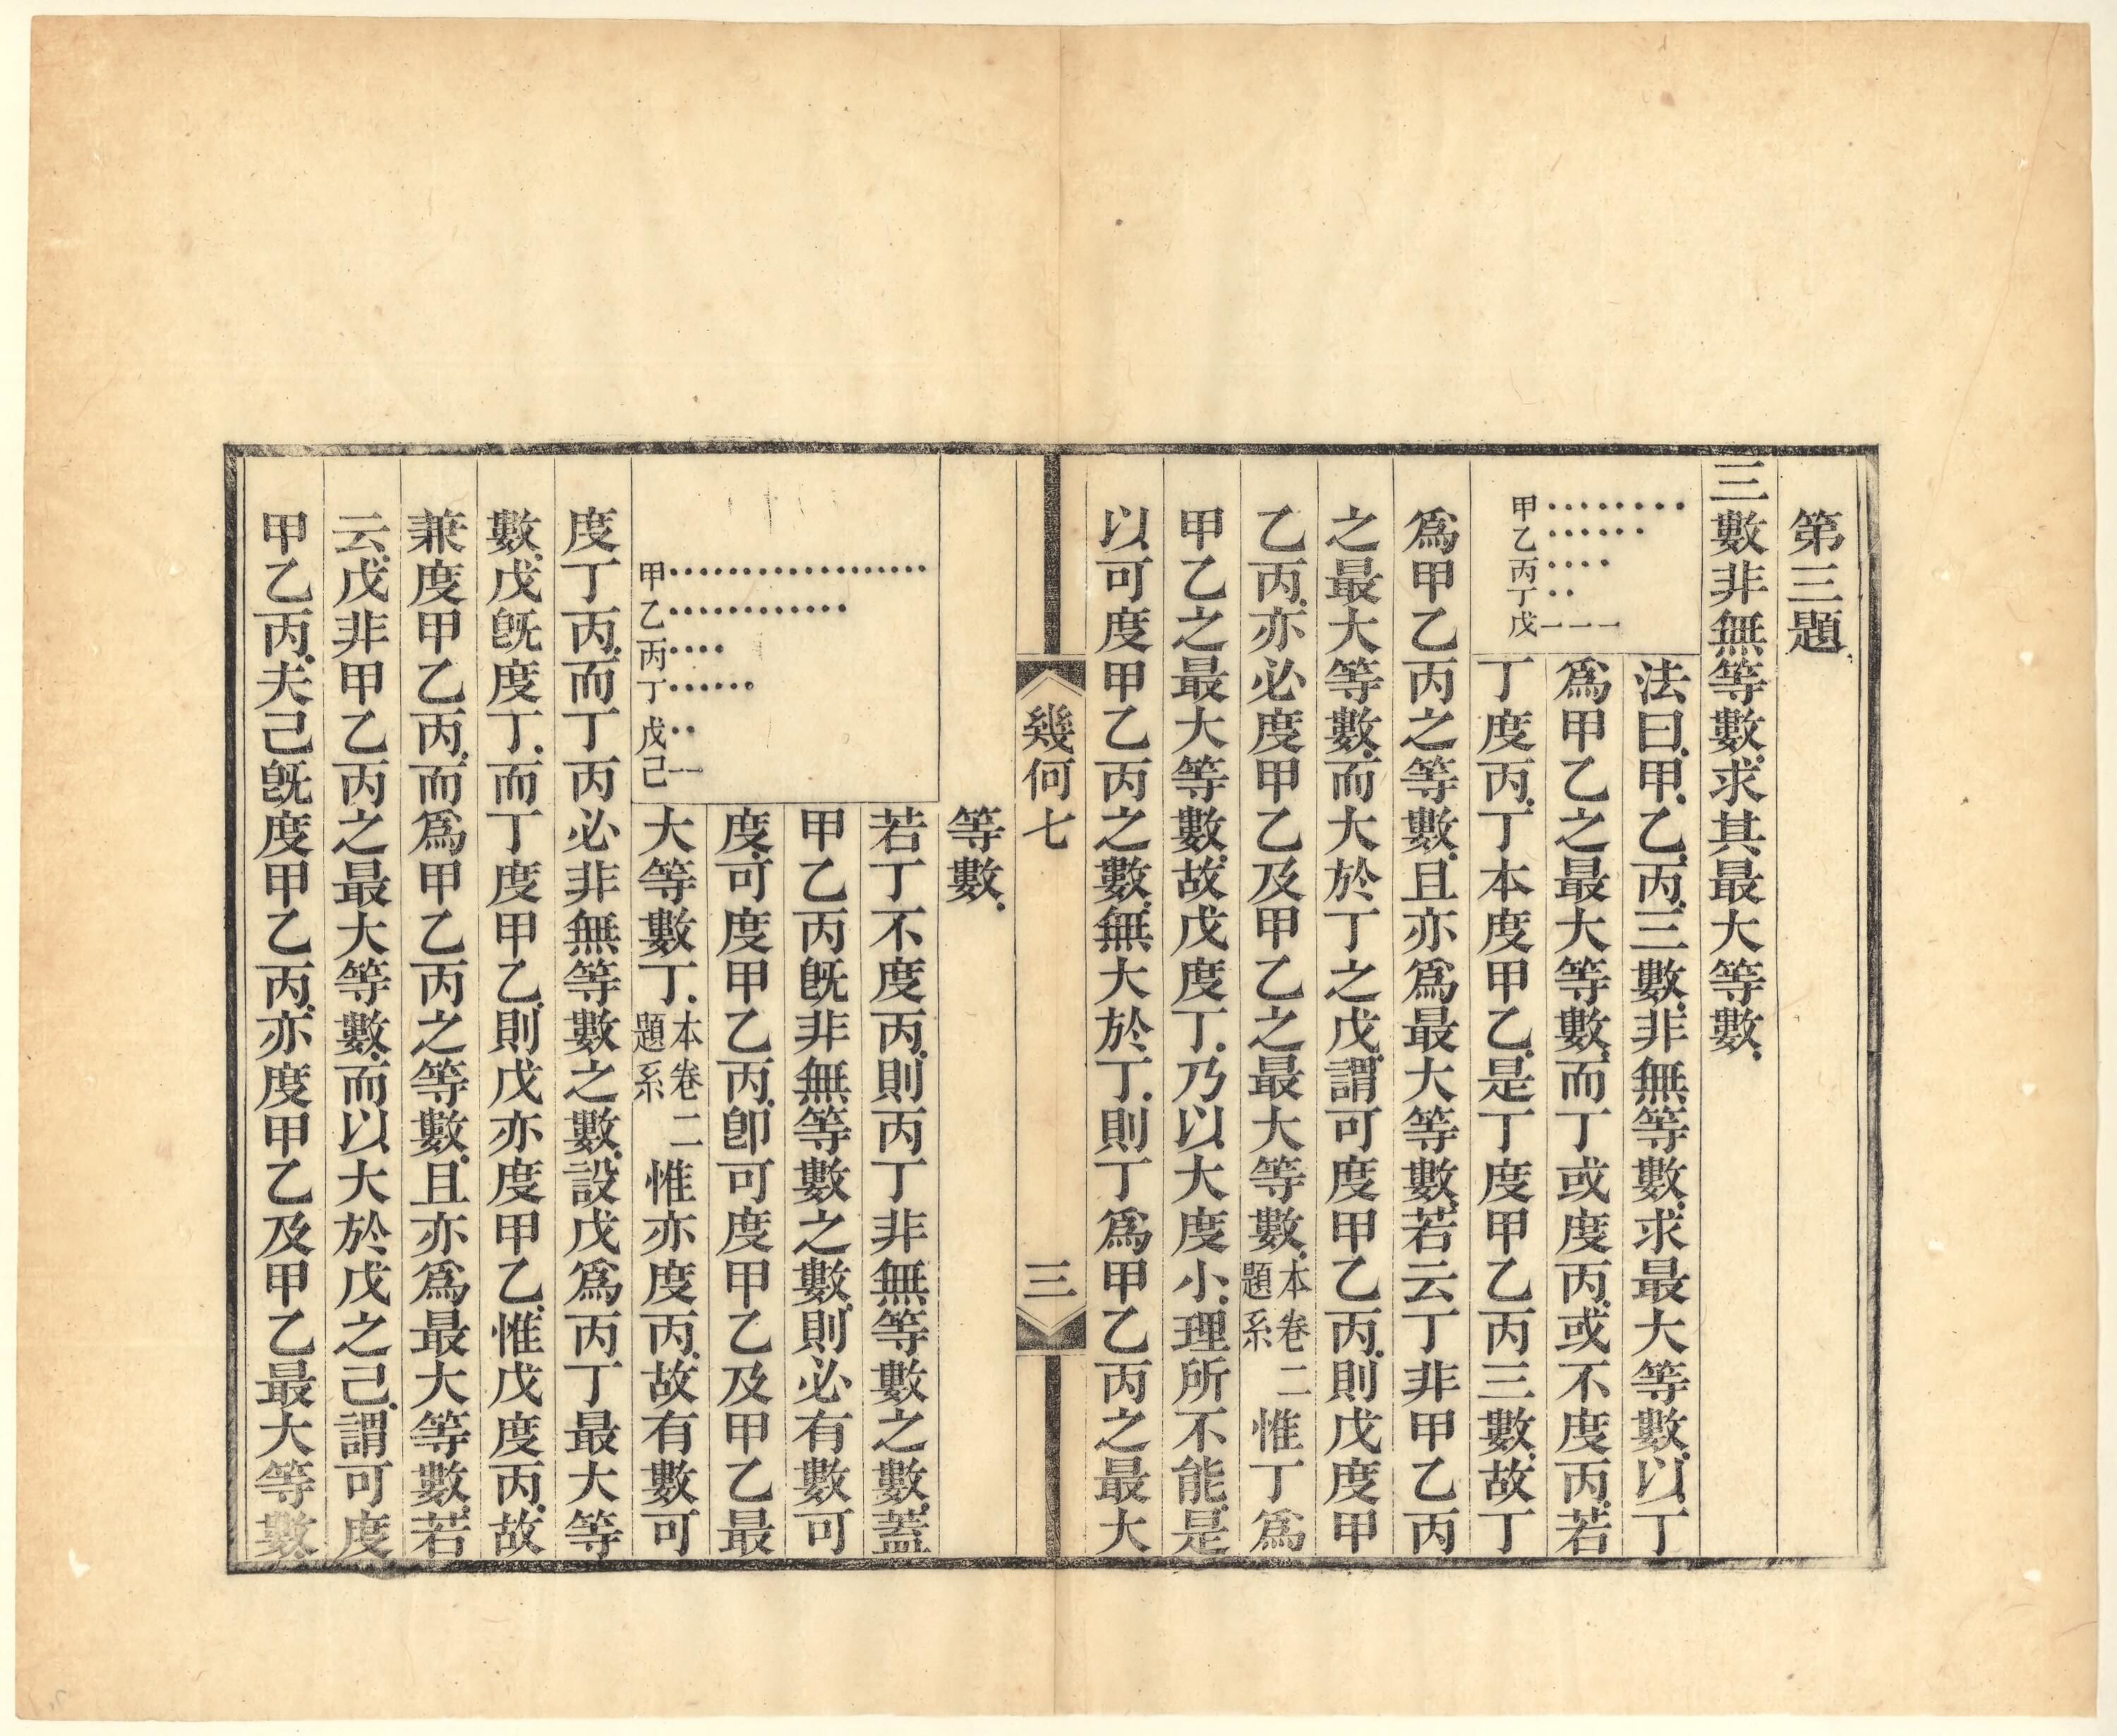 第三題
三數非無等數求其最大等數
甲
乙
丙
丁
戊一一一
法曰甲乙丙三數非無等數求最大等數以丁
爲甲乙之最大等數而丁或度丙或不度丙若
丁度丙丁本度甲乙是丁度甲乙丙三數故丁
爲甲乙丙之等數且亦爲最大等數若云丁非甲乙丙
之最大等數而大於丁之戊謂可度甲乙丙則戊度甲
乙丙亦必度甲乙及甲乙之最大等數本卷二題系惟丁爲
甲乙之最大等數故戊度丁乃以大度小理所不能是
以可度甲乙丙之數無大於丁則丁爲甲乙丙之最大
幾何七
三
等數
甲
乙
丙
丁
戊
己一
若丁不度丙則丙丁非無等數之數蓋
甲乙丙旣非無等數之數則必有數可
度可度甲乙丙卽可度甲乙及甲乙最
大等數丁本卷二題系惟亦度丙故有數可
度丁丙而丁丙必非無等數之數設戊爲丙丁最大等
數戊旣度丁而丁度甲乙則戊亦度甲乙惟戊度丙故
兼度甲乙丙而爲甲乙丙之等數且亦爲最大等數若
云戊非甲乙丙之最大等數而以大於戊之己謂可度
甲乙丙夫己旣度甲乙丙亦度甲乙及甲乙最大等數